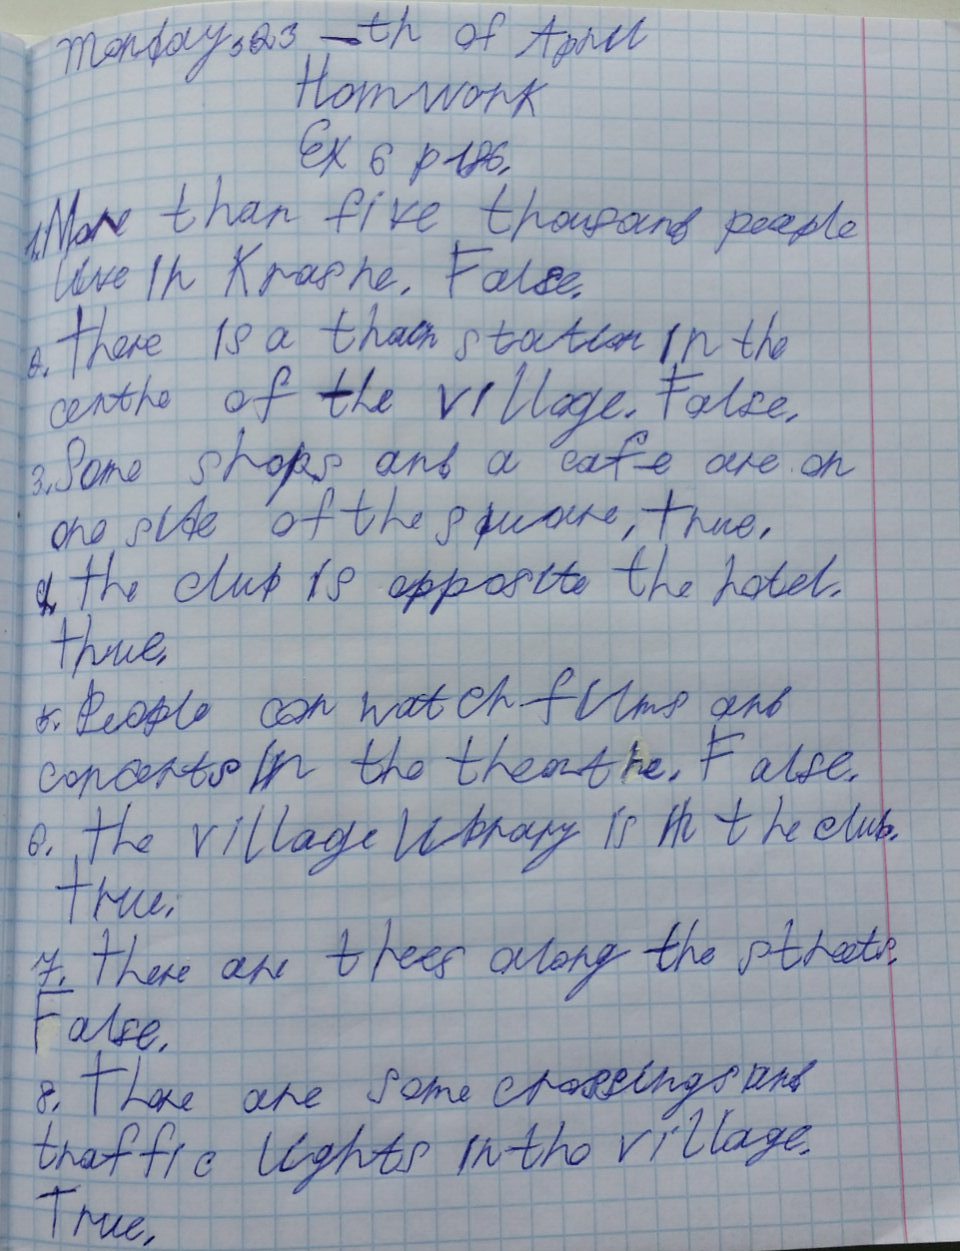 Monday, 23 -th of April
Homwork
Ex 6 p 186.
1. More than five thousand people
live in Krasne. False.
2. There is a train station in the
centre of the village. False.
3. Some shops and a cafe are on
one side of the square, true.
4. The club is opposite the hotel.
true.
5. People can watch films and
concerts in the theatre. False.
6. The village library is in the club.
True.
7. There are trees along the streets.
False.
8. There are some crossings and
traffic lights in the village.
True.